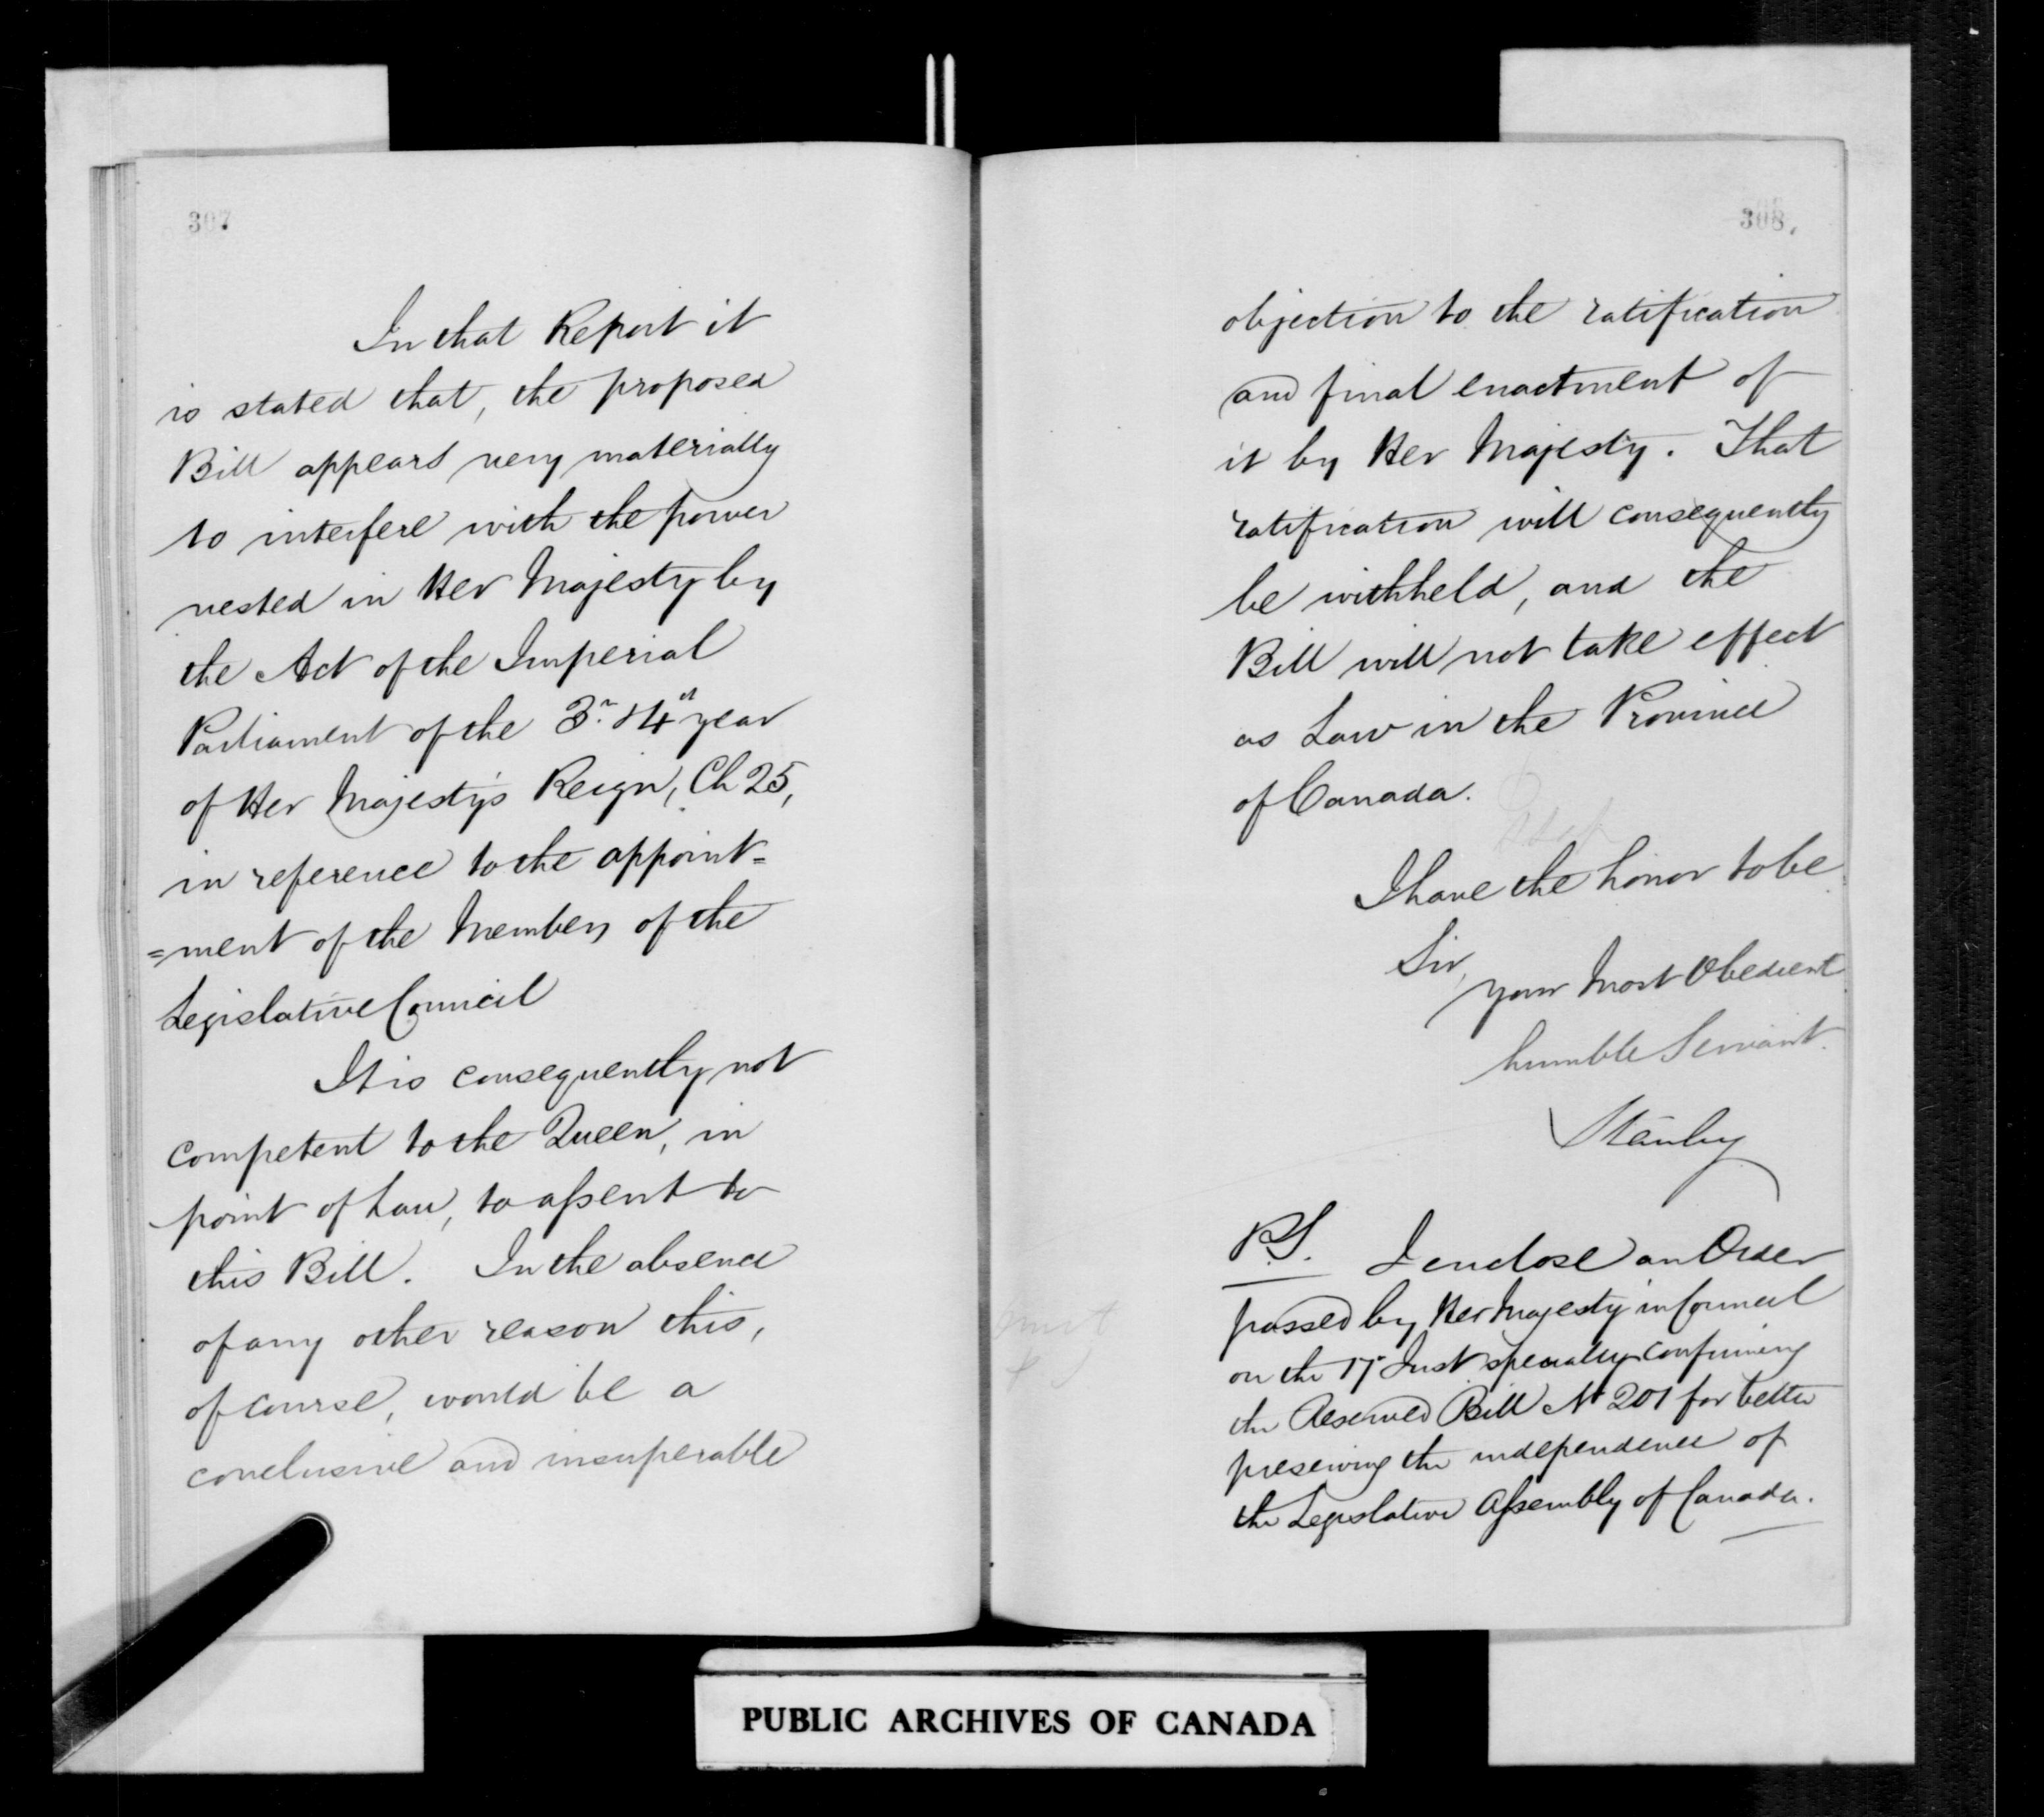 307
In that Report it
is stated that, the proposed
Bill appears very materially
to interfere with the power
vested in Her Majesty by
the Act of the Imperial
Parliament of the 3r. & 4th year
of Her Majesty's Reign, Ch 25,
in reference to the appoint=
=ment of the Members of the
Legislative Council
It is consequently not
competent to the Queen, in
point of Law, to assent to
this Bill. In the absence
of any other reason this,
of course, would be a
conclusive and insuperable
308.
objection to the ratification
and final enactment of
it by Her Majesty. That
ratification will consequently
be withheld, and the
Bill will not take effect
as Law in the Province
of Canada.
I have the honor to be
Sir,
your Most Obedient
humble Servant.
Stanley
P.S. I enclose an Order
passed by Her Majesty in Council
on the 17th Inst specially confirming
the Reserved Bill No 201 for better
preserving the independence of
the Legislative Assembly of Canada.
PUBLIC ARCHIVES OF CANADA